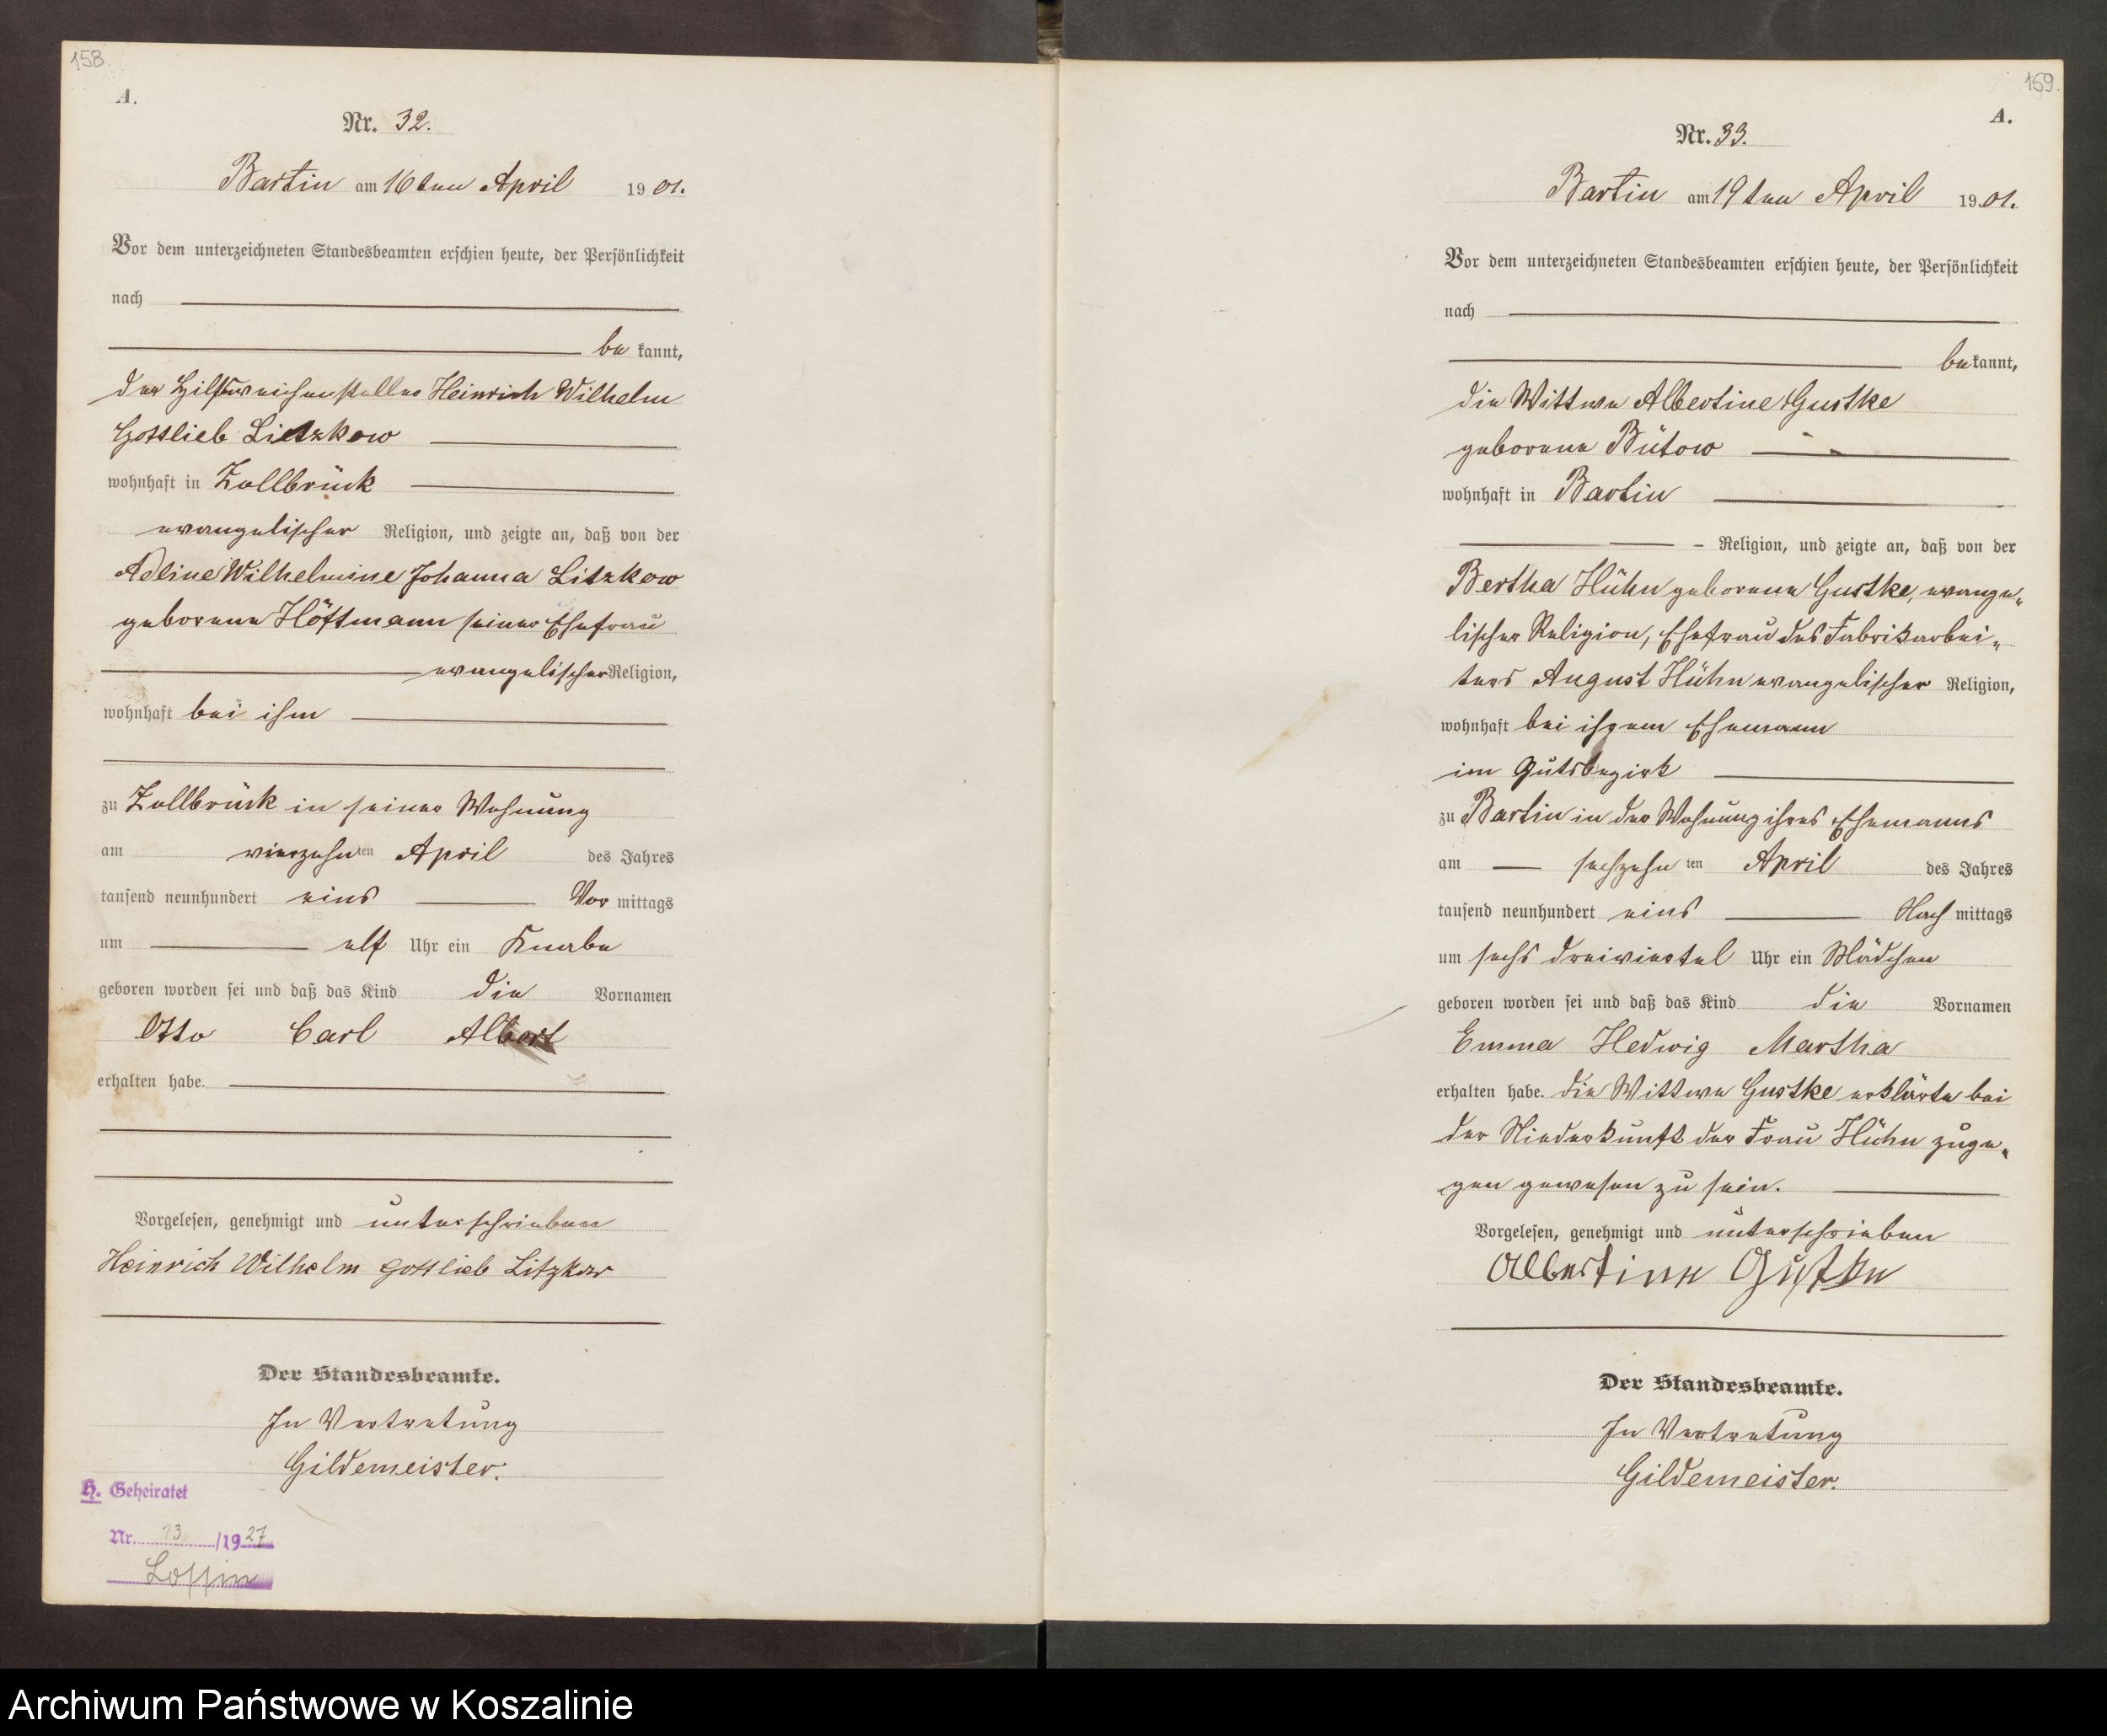 158.
A.
Nr. 32.
Bartin am 16ten April 1901.
Vor dem unterzeichneten Standesbeamten erschien heute, der Persönlichkeit
nach
be kannt,
der Hilfsweichensteller Heinrich Wilhelm
Gottlieb Litzkow
wohnhaft in Zollbrück
evangelischer Religion, und zeigte an, daß von der
Adline Wilhelmine Johanna Litzkow
geborene Höftmann seiner Ehefrau
evangelischer Religion,
wohnhaft bei ihm
zu Zollbrück in seiner Wohnung
am vierzehnten April des Jahres
tausend neunhundert eins Vor mittags
um elf Uhr ein Knabe
geboren worden sei und daß das Kind die Vornamen
Otto Carl Albert
erhalten habe.
Vorgelesen, genehmigt und unterschrieben
Heinrich Wilhelm Gottlieb Litzkow
Der Standesbeamte.
In Vertretung
Gildemeister.
H. Geheiratet
Nr. 13 /1927
159.
A.
Nr. 33.
Bartin am 19ten April 1901.
Vor dem unterzeichneten Standesbeamten erschien heute, der Persönlichkeit
nach
be kannt,
die Wittwe Albertine Gustke
geborene Bütow
wohnhaft in Bartin
Religion, und zeigte an, daß von der
Bertha Hühn geborene Gustke, evange„
lischer Religion, Ehefrau des Fabrikarbei„
ters August Hühn evangelischer Religion,
wohnhaft bei ihrem Ehemann
im Gutsbezirk
zu Bartin in der Wohnung ihres Ehemanns
am sechzehnten April des Jahres
tausend neunhundert eins Nach mittags
um sechs dreiviertel Uhr ein Mädchen
geboren worden sei und daß das Kind die Vornamen
Emma Hedwig Martha
erhalten habe. Die Wittwe Gustke erklärte bei
der Niederkunft der Frau Hühn zuge„
gen gewesen zu sein.
Vorgelesen, genehmigt und unterschrieben
Albertine Gustke
Der Standesbeamte.
In Vertretung
Gildemeister.
Archiwum Państwowe w Koszalinie